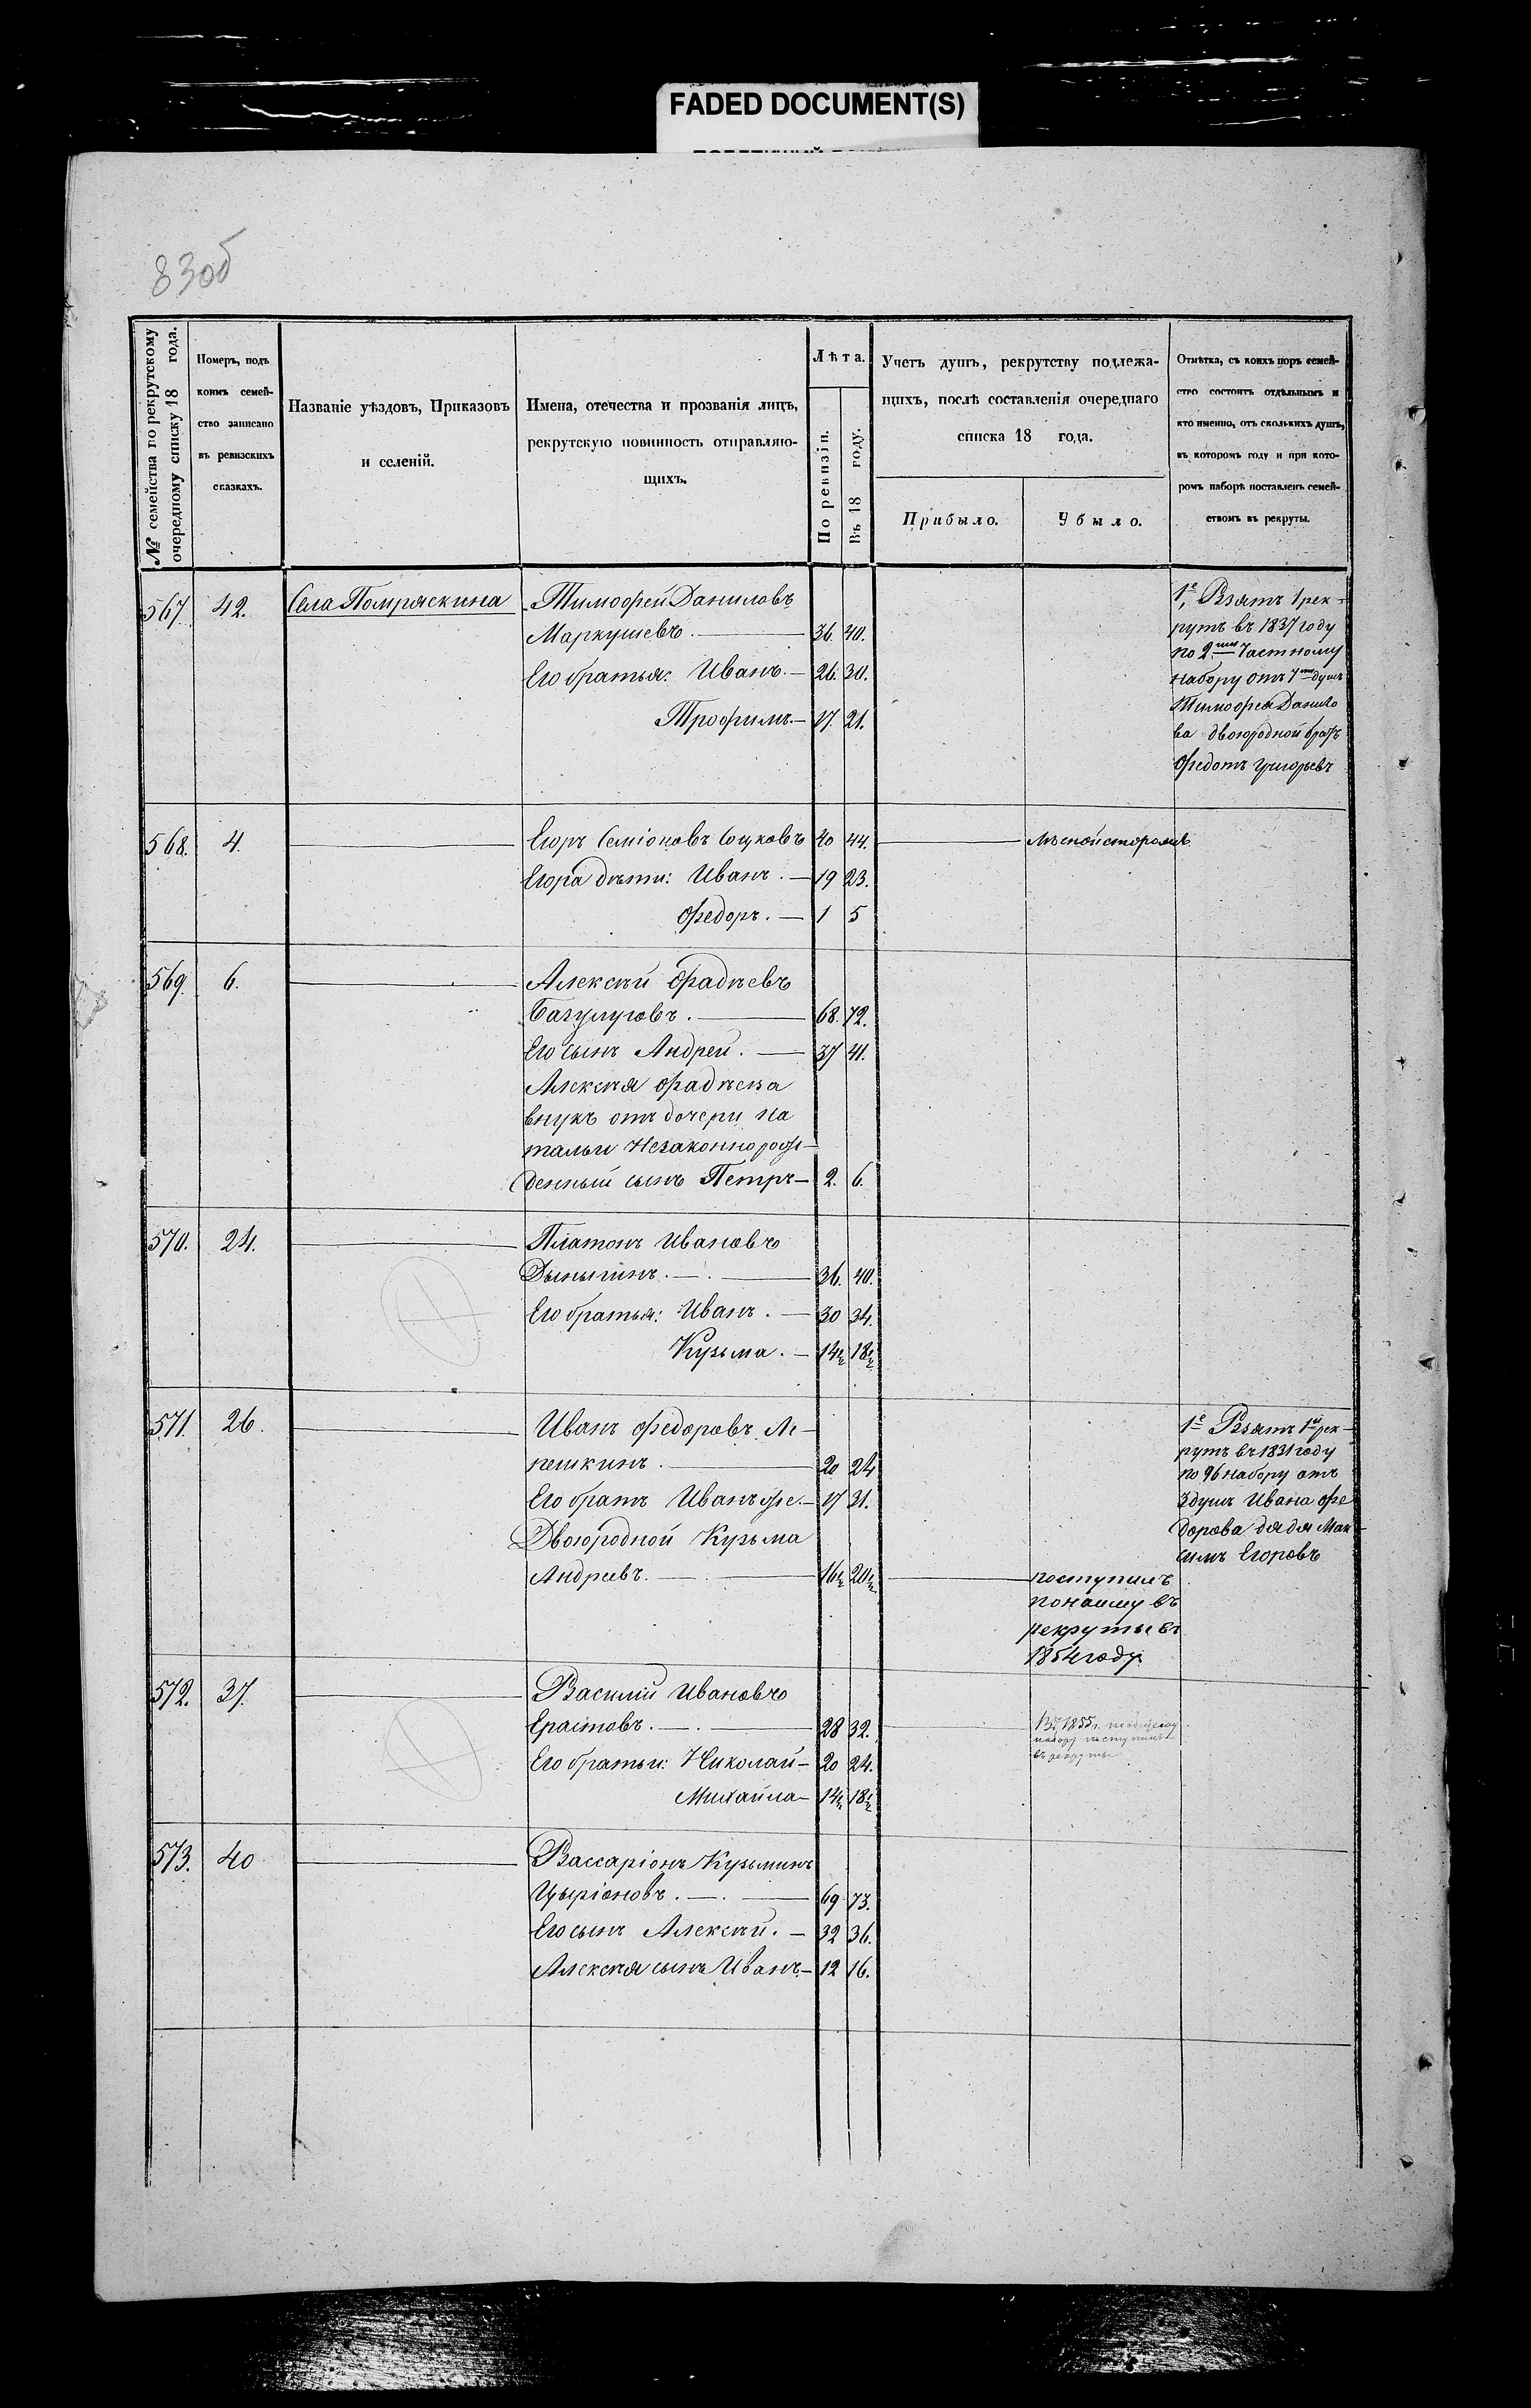 FADED DOCUMENT(S)
83об
№ семейства по рекрутскому
очередному списку 18 года.
Номеръ, подъ
коимъ семей-
ство записано
въ ревизскихъ
сказкахъ.
Названіе уѣздовъ, Приказовъ
и селеній.
Имена, отечества и прозванія лицъ,
рекрутскую повинность отправляю-
щихъ.
Лѣта.
По ревизіи.
Въ 18 году.
Учетъ душъ, рекрутству подлежа-
щихъ, послѣ составленія очереднаго
списка 18 года.
Прибыло.
Убыло.
Отмѣтка, съ коихъ поръ семей-
ство состоитъ отдѣльнымъ и
кто именно, отъ сколькихъ душъ,
въ которомъ году и при кото-
ромъ наборѣ поставленъ семей-
ствомъ въ рекруты.
567. 42. Села Помряскина Тимофей Даниловъ
Маркушевъ. — 36. 40.
Его братья: Иванъ. — 26. 30.
Трофимъ. — 17. 21.
1е, Взятъ 1 рек-
рутъ въ 1837 году
по 2му Частному
набору отъ 7ми душъ
Тимофея Данило
ва двоюродной братъ
Федотъ Григорьевъ
568. 4. — Егоръ Семіоновъ 40 44. —
Егора дѣти: Иванъ. — 19 23.
Федоръ. — 1 5
569. 6. — Алексѣй Фадѣевъ
68. 72.
Его сынъ Андрей. — 37 41.
Алексѣя Фадѣева
внукъ отъ дочери На
тальи Незаконнорож-
денный сынъ Петръ — 2. 6.
570. 24. — Платонъ Ивановъ
36. 40.
Его братья: Иванъ. — 30 34.
Кузьма. — 14½ 18½
571. 26. — Иванъ Федоровъ Ле-
пешкинъ. — 20 24
Его братъ Иванъ же. — 17 21.
Двоюродной Кузьма
Андреевъ. — 16½ 20½ — поступилъ
по найму въ
рекруты въ
1854 году.
1е Взятъ 1й рек-
рутъ въ 1831 году
по 96 набору отъ
3 душъ Ивана Фе
дорова дядя Мак-
симъ Егоровъ
572. 37. — Василий Ивановъ
Ерастовъ. — 28 32. — Въ 1855 г.
набору поступилъ
въ рекруты
Его братьи: Николай — 20 24.
Михайла — 14½ 18½
573. 40 — Вассаріонъ Кузьминъ
69. 73.
Его сынъ Алексѣй. — 32 36.
Алексѣя сынъ Иванъ — 12 16.